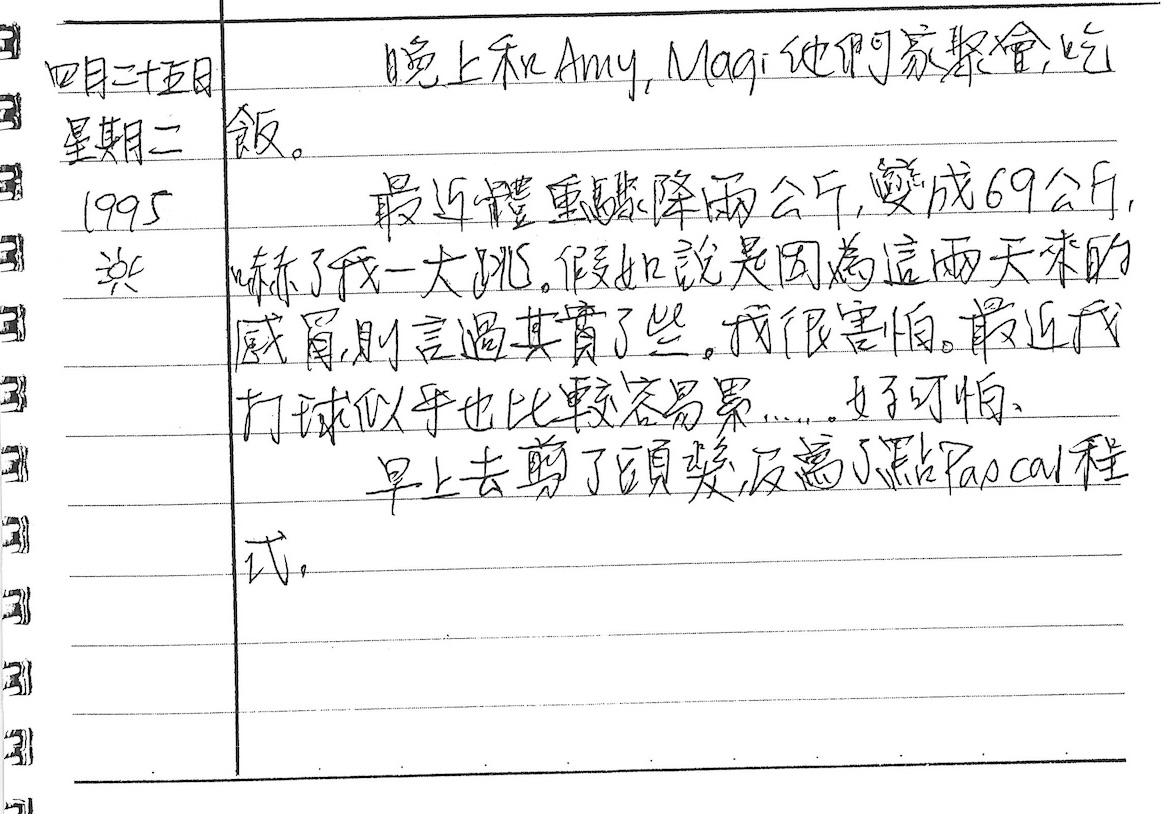 四月二十五日
星期二
1995
晚上和Amy, Magi他們家聚會,吃
飯。
最近體重驟降兩公斤,變成69公斤,
嚇了我一大跳。假如說是因為這兩天來的
感冒,則言過其實了些。我很害怕。最近我
打球似乎也比較容易累……。好可怕、
早上去剪了頭髮,及寫了點Pascal程
式。